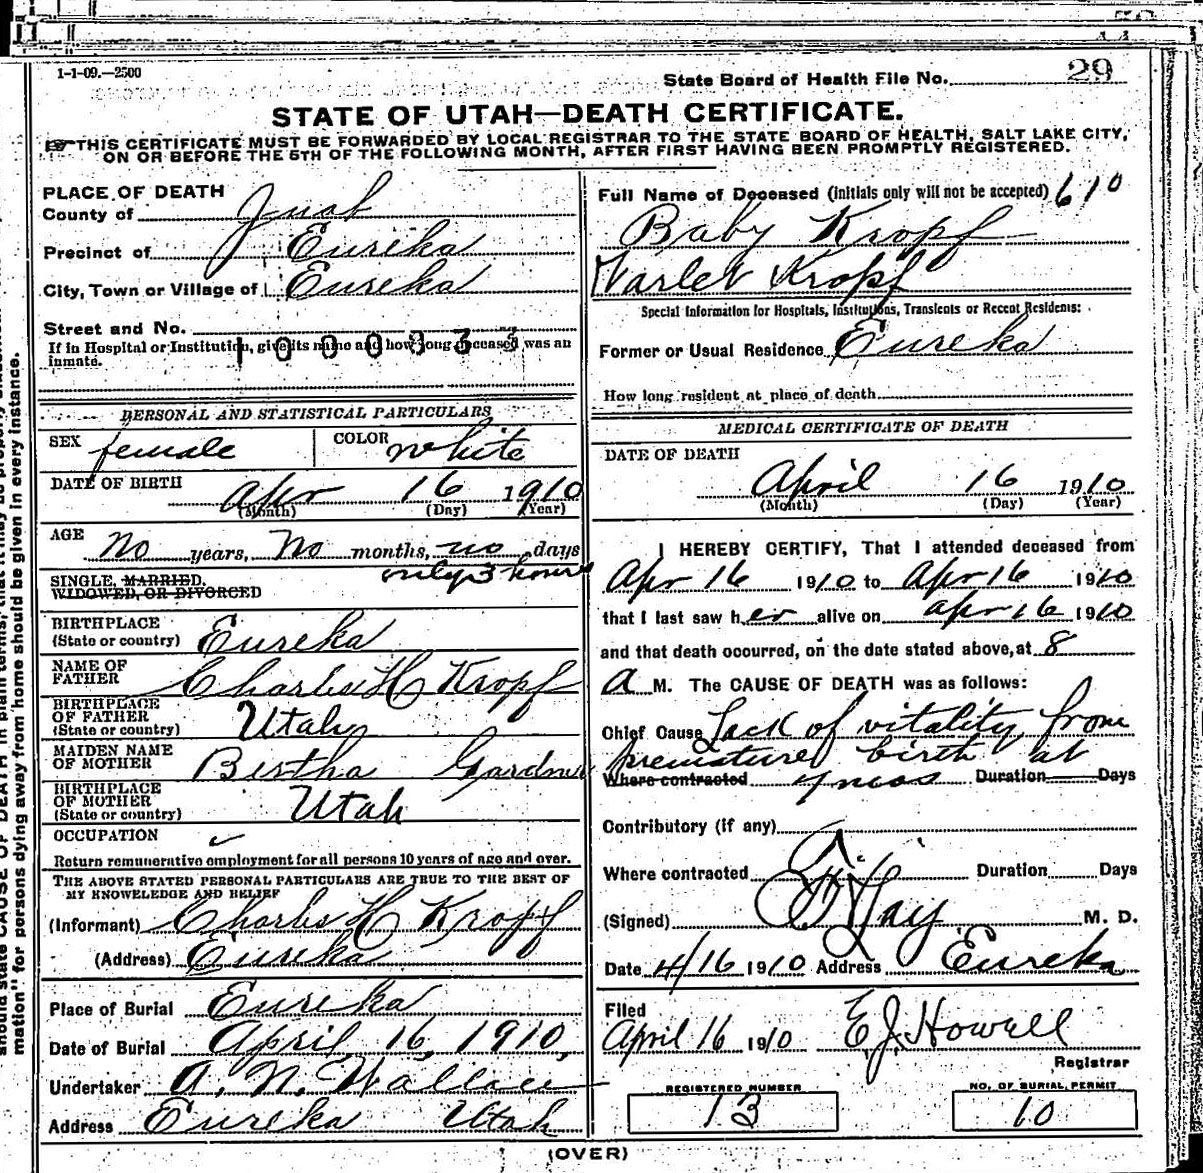 1-1-09.—2500
State Board of Health File No. 29
STATE OF UTAH—DEATH CERTIFICATE.
THIS CERTIFICATE MUST BE FORWARDED BY LOCAL REGISTRAR TO THE STATE BOARD OF HEALTH, SALT LAKE CITY,
ON OR BEFORE THE 5TH OF THE FOLLOWING MONTH, AFTER FIRST HAVING BEEN PROMPTLY REGISTERED.
PLACE OF DEATH
County of Juab
Precinct of Eureka
City, Town or Village of Eureka
Street and No.
If in Hospital or Institution, give its name and how long deceased was an
inmate.
PERSONAL AND STATISTICAL PARTICULARS
SEX female COLOR white
DATE OF BIRTH Apr 16 1910
(Month) (Day) (Year)
AGE No years, No months, no days
only 3 hours
SINGLE, MARRIED,
WIDOWED, OR DIVORCED
BIRTHPLACE
(State or country) Eureka
NAME OF
FATHER Charles H Kropf
BIRTHPLACE
OF FATHER
(State or country) Utah
MAIDEN NAME
OF MOTHER Bertha Gardner
BIRTHPLACE
OF MOTHER
(State or country) Utah
OCCUPATION
Return remunerative employment for all persons 10 years of age and over.
THE ABOVE STATED PERSONAL PARTICULARS ARE TRUE TO THE BEST OF
MY KNOWLEDGE AND BELIEF
(Informant) Charles H Kropf
(Address) Eureka
Place of Burial Eureka
Date of Burial April 16, 1910,
Undertaker A. N. Wallace
Address Eureka Utah
Full Name of Deceased (initials only will not be accepted) 610
Baby Kropf
Kropf
Special Information for Hospitals, Institutions, Transients or Recent Residents:
Former or Usual Residence Eureka
How long resident at place of death
MEDICAL CERTIFICATE OF DEATH
DATE OF DEATH
April 16 1910
(Month) (Day) (Year)
I HEREBY CERTIFY, That I attended deceased from
Apr 16 1910 to Apr 16 1910
that I last saw her alive on apr 16 1910
and that death occurred, on the date stated above, at 8
A M. The CAUSE OF DEATH was as follows:
Chief Cause Lack of vitality from
premature birth at
Where contracted 7 mos Duration Days
Contributory (if any)
Where contracted Duration Days
(Signed) M. D.
Date 4/16 1910 Address Eureka
Filed
April 16 1910 E J. Howell
Registrar
REGISTERED NUMBER
13
NO. OF BURIAL PERMIT
10
(OVER)
mation" for persons dying away from home should be given in every instance.